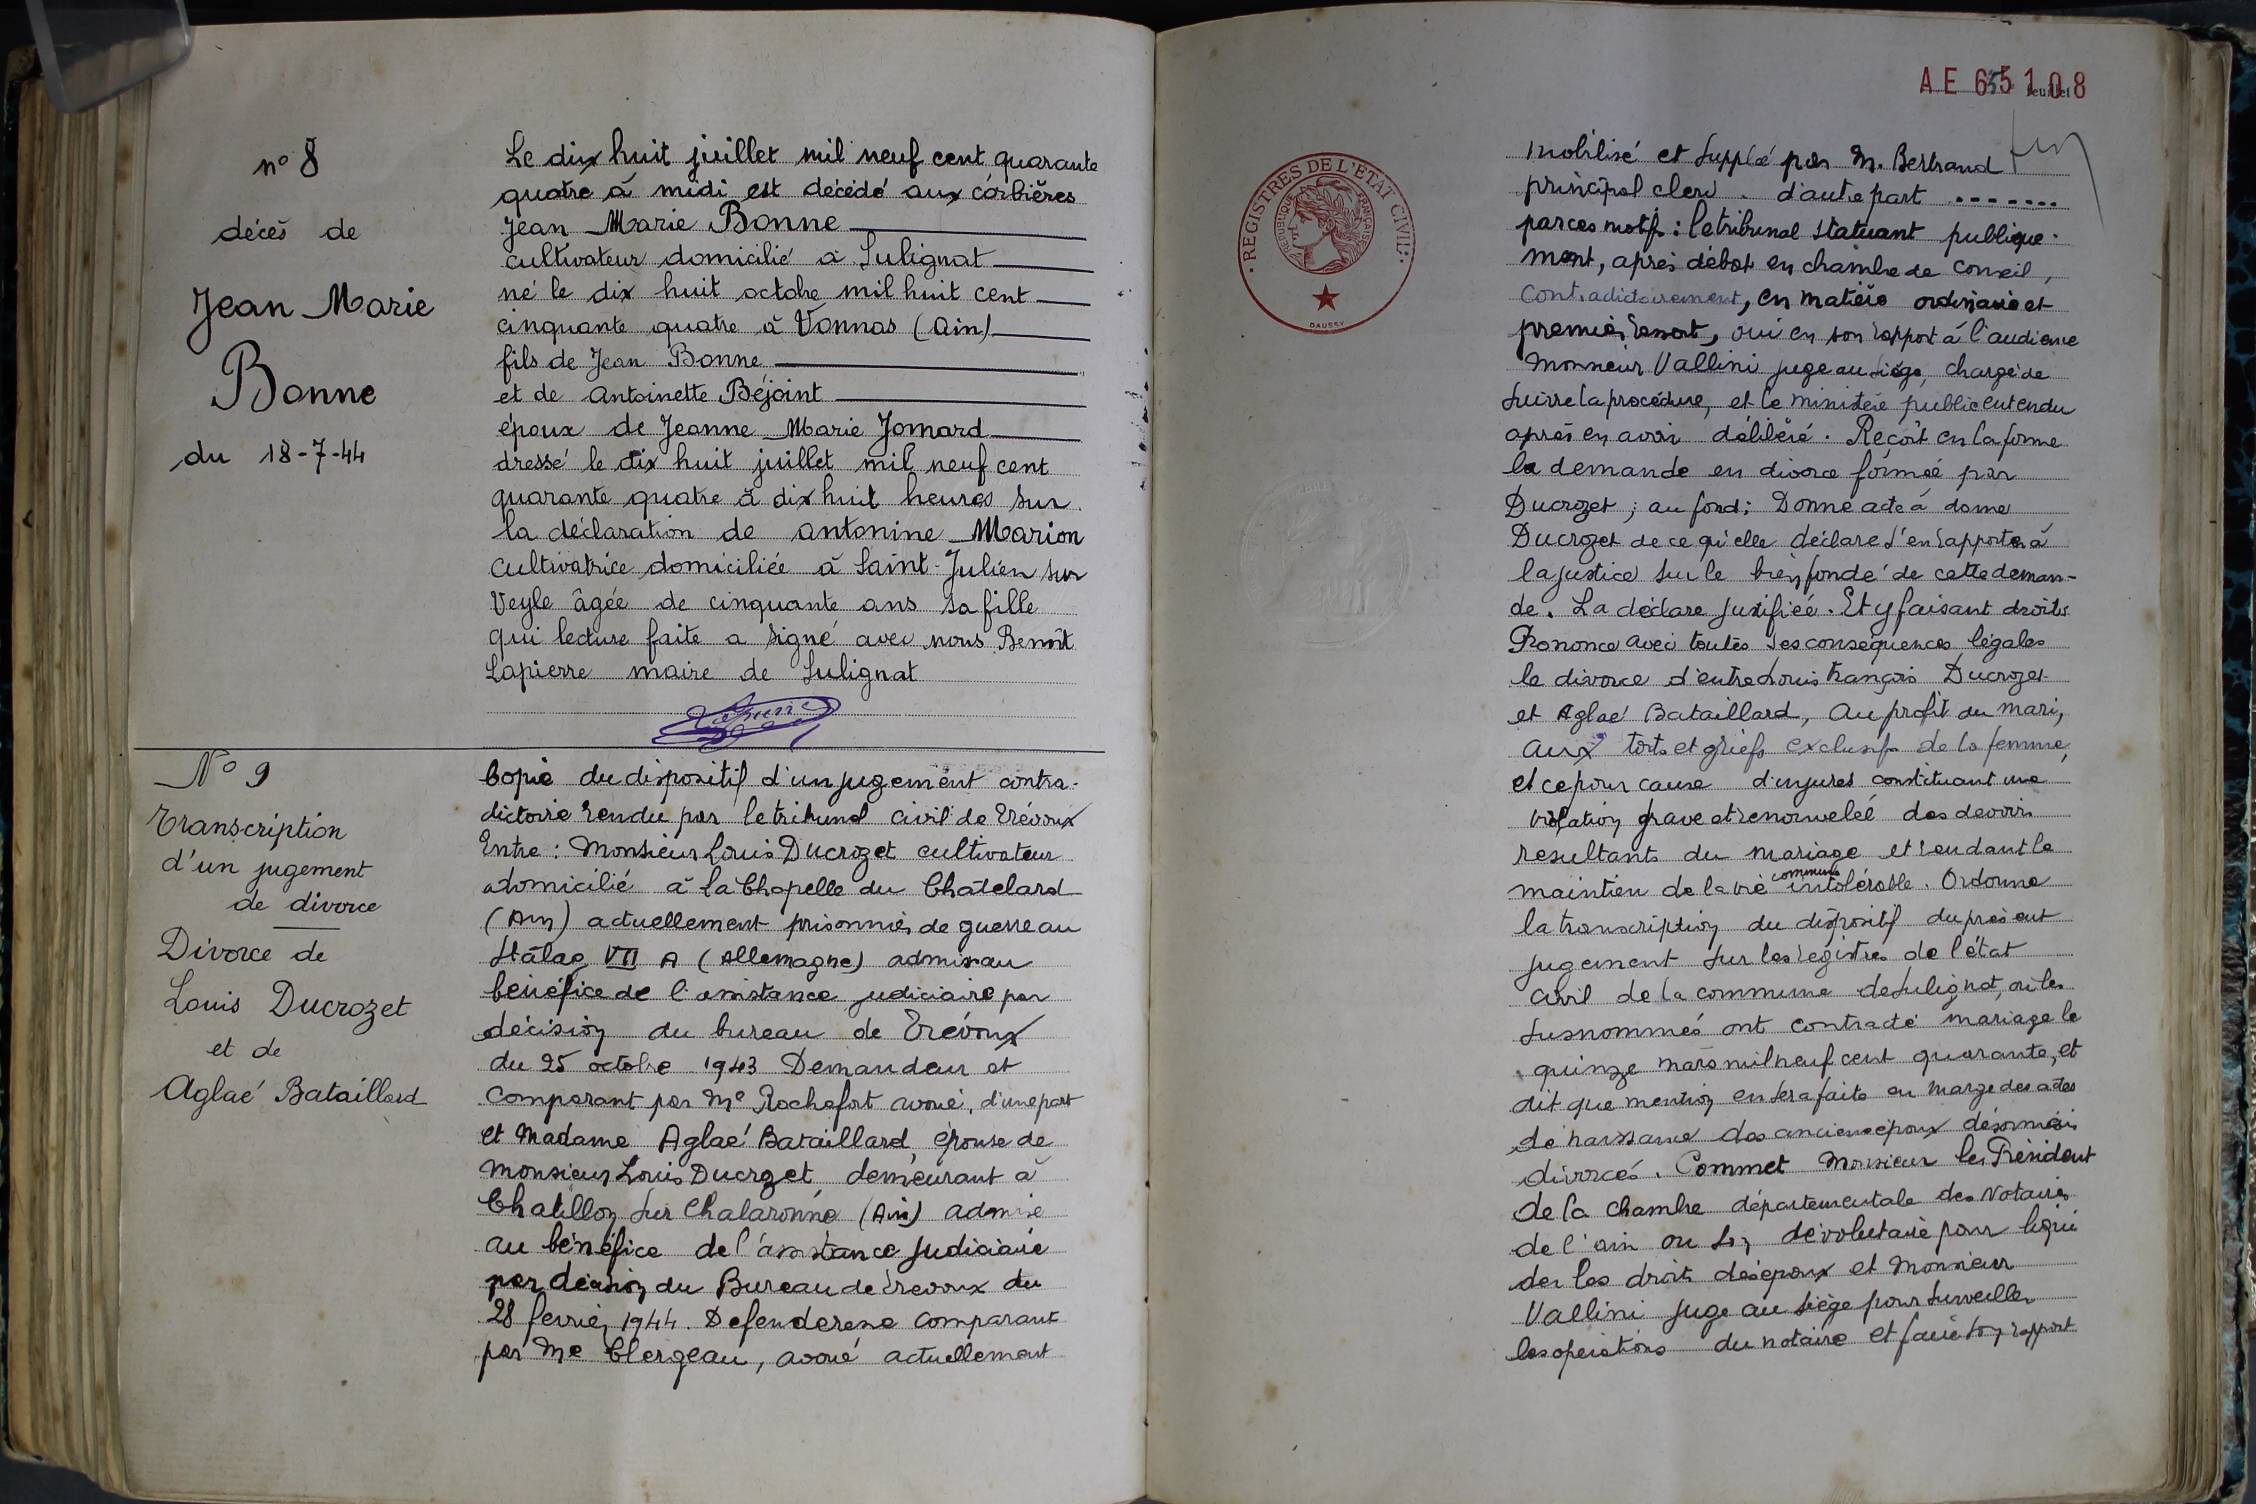 n° 8
décès de
Jean Marie
Bonne
du 18-7-44
Le dix huit juillet mil neuf cent quarante
quatre à midi est décédé aux corbières
Jean Marie Bonne
cultivateur domicilié à Sulignat
né le dix huit octobre mil huit cent
cinquante quatre à Vonnas (Ain)
fils de Jean Bonne
et de Antoinette Béjoint
époux de Jeanne Marie Jomard
dressé le dix huit juillet mil neuf cent
quarante quatre à dix huit heures sur
la déclaration de antonine Marion
cultivatrice domiciliée à Saint-Julien sur
Veyle âgée de cinquante ans sa fille
qui lecture faite a signé avec nous Benoît
Lapierre maire de Sulignat
Lapierre
N° 9
Transcription
d'un jugement
de divorce
Divorce de
Louis Ducrozet
et de
Aglaé Bataillard
Copie du dispositif d'un jugement contra-
dictoire rendu par le tribunal civil de Trévoux
Entre : Monsieur Louis Ducrozet cultivateur
domicilié à La Chapelle du Châtelard
(Ain) actuellement prisonnier de guerre au
Stalag VII A (Allemagne) admis au
bénéfice de l'assistance judiciaire par
décision du bureau de Trévoux
du 25 octobre 1943 Demandeur et
Comparant par Me Rochefort avoué, d'une part
et Madame Aglaé Bataillard, épouse de
Monsieur Louis Ducrozet, demeurant à
Chatillon sur Chalaronne (Ain) admise
au bénéfice de l'assistance Judiciaire
par décision du Bureau de Trevoux du
28 fevrier 1944. Defenderesse comparant
par Me Clergeau, avoué actuellement
AE 65108
feuillet
REGISTRES DE L'ETAT CIVIL
REPUBLIQUE FRANÇAISE
DAUSSY
mobilisé et Suppléé par M. Bertrand
principal clerc. d'autre part .......
par ces motifs : le tribunal Statuant publique-
ment, après débat en chambre de conseil,
Contradictoirement, en matière ordinaire et
premier ressort, oui en son rapport à l'audience
Monsieur Vallini juge au siège, chargé de
suivre la procédure, et le ministère public entendu
après en avoir délibéré. Reçoit en la forme
la demande en divorce formée par
Ducrozet ; au fond ; Donne acte à dame
Ducrozet de ce qu'elle déclare s'en rapporter à
la justice sur le bien fondé de cette deman-
de. La déclare justifiée. Et y faisant droits
Prononce avec toutes ses conséquences légales
le divorce d'entre Louis François Ducrozet
et Aglaé Bataillard, Au profit du mari,
aux torts et griefs exclusifs de la femme,
et ce pour cause d'injures constituant une
violation grave et renouvelée des devoirs
resultants du mariage et rendant le
maintien de la vie commune intolérable. Ordonne
la transcription du dispositif du présent
jugement sur les registres de l'état
civil de la commune de Sulignat, où les
susnommés ont contracté mariage le
quinze mars mil neuf cent quarante, et
dit que mention en sera faite en marge des actes
de naissance des anciens époux désormais
divorcés. Commet Monsieur le Président
de la chambre départementale des Notaires
de l'ain ou son dévolutaire pour liqui
der les droits des époux et Monsieur
Vallini Juge au siège pour surveiller
les opérations du notaire et faire son rapport